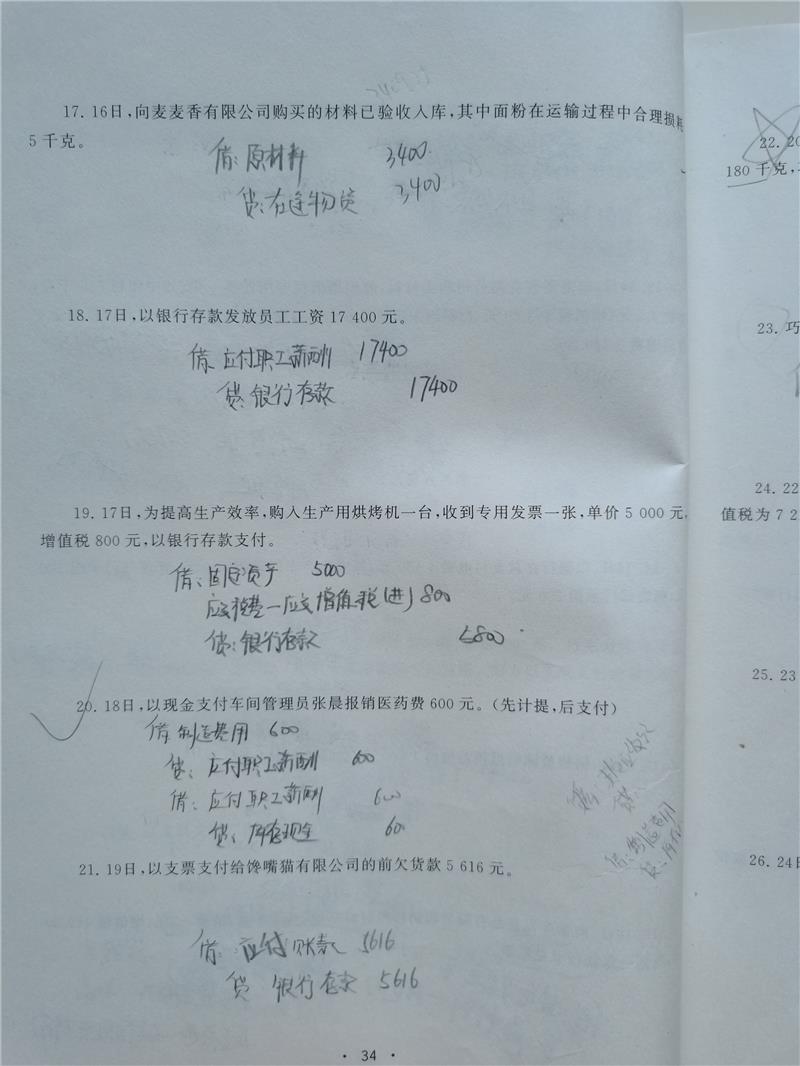 17. 16日，向麦麦香有限公司购买的材料已验收入库，其中面粉在运输过程中合理损耗
5千克。
借：原材料 3400
贷：在途物资 3400
18. 17日，以银行存款发放员工工资17 400元。
借：应付职工薪酬 17400
贷：银行存款 17400
19. 17日，为提高生产效率，购入生产用烘烤机一台，收到专用发票一张，单价5 000元，
增值税800元，以银行存款支付。
借：固定资产 5000
应交税费—应交增值税(进) 800
贷：银行存款 5800
20. 18日，以现金支付车间管理员张晨报销医药费600元。(先计提，后支付)
借：制造费用 600
贷：应付职工薪酬 600
借：应付职工薪酬 600
贷：库存现金 600
21. 19日，以支票支付给馋嘴猫有限公司的前欠货款5 616元。
借：应付账款 5616
贷 银行存款 5616
· 34 ·
22. 20
180千克，
23. 巧
24. 22
值税为7 2
25. 23
26. 24日